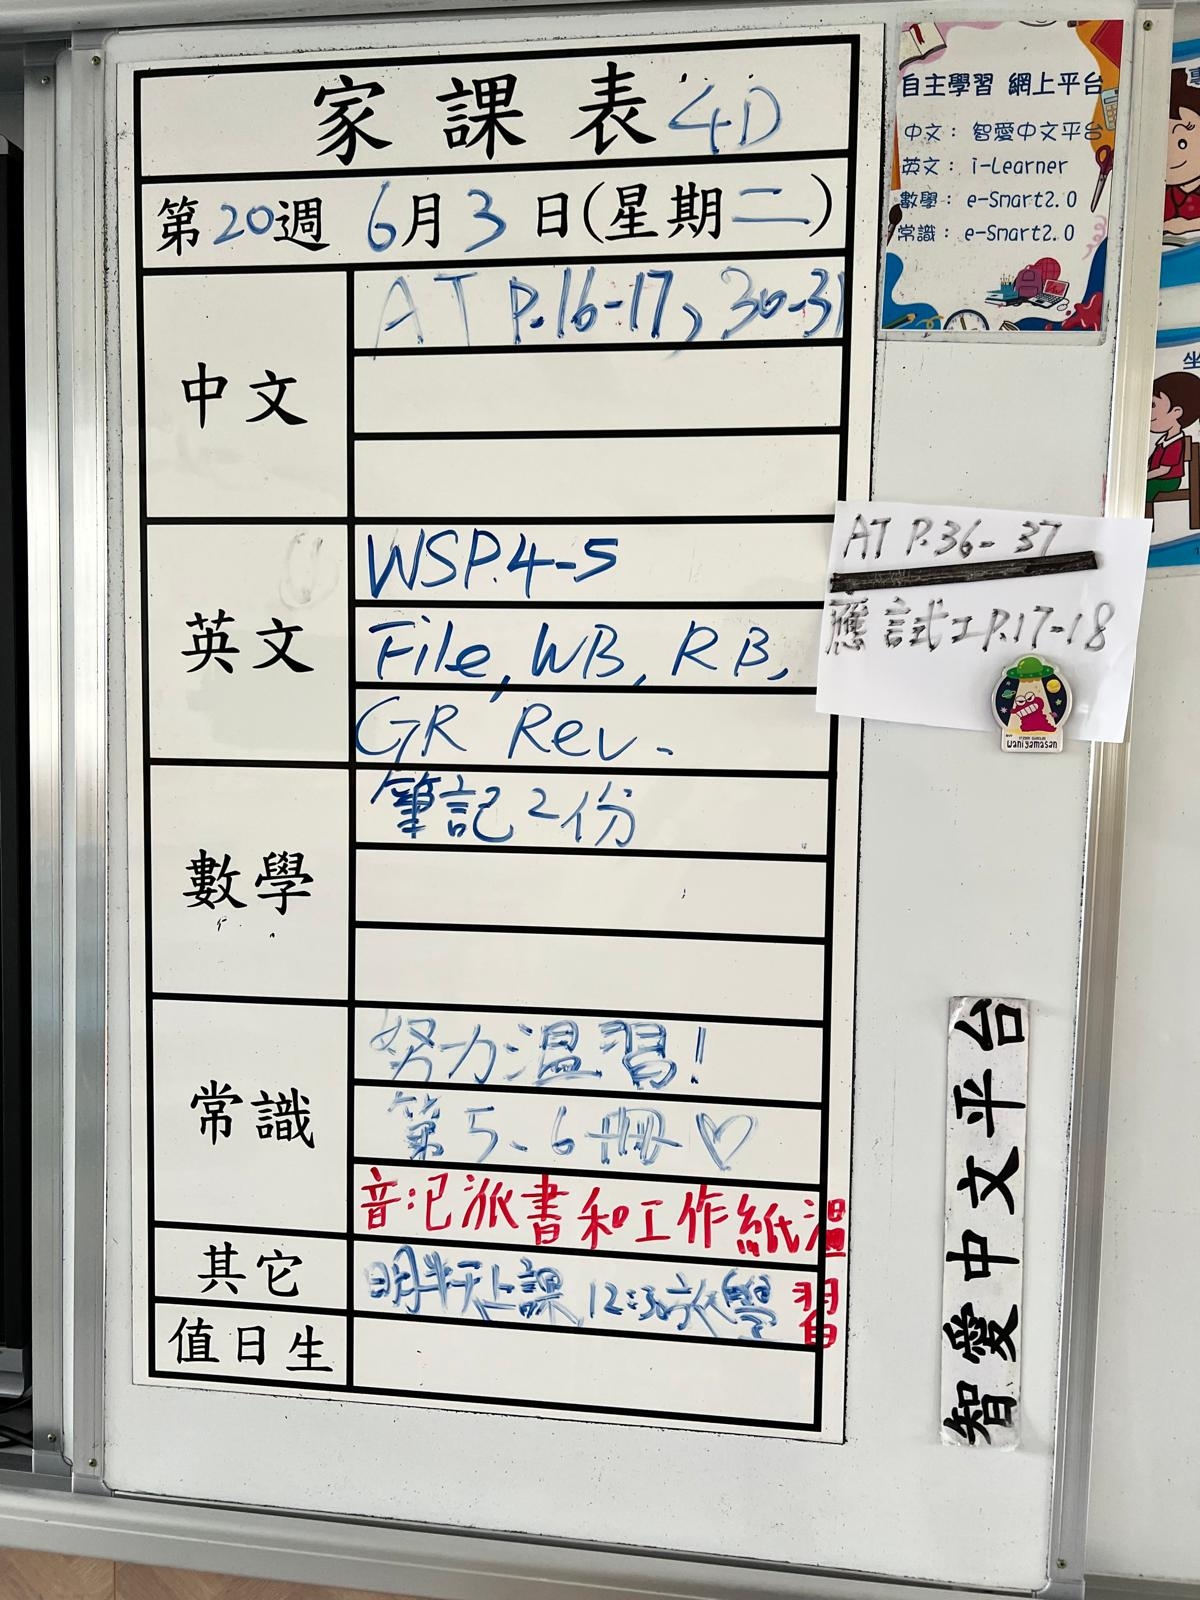 家課表 4D
第20週 6月3日(星期二)
中文
AT P.16-17, 30-31
英文
WSP.4-5
File, WB, RB,
GR Rev.
數學
筆記2份
常識
努力溫習!
第5、6冊♡
音:記派書和工作紙溫
習
其它
明半天上課,12:30放學
值日生
自主學習 網上平台
中文： 智愛中文平台
英文： i-Learner
數學： e-Smart2.0
常識： e-Smart2.0
AT P.36-37
應試工P.17-18
waniyamasan
智愛中文平台
坐